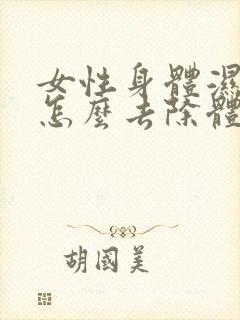 女性身體濕
怎麼去除體
胡國美